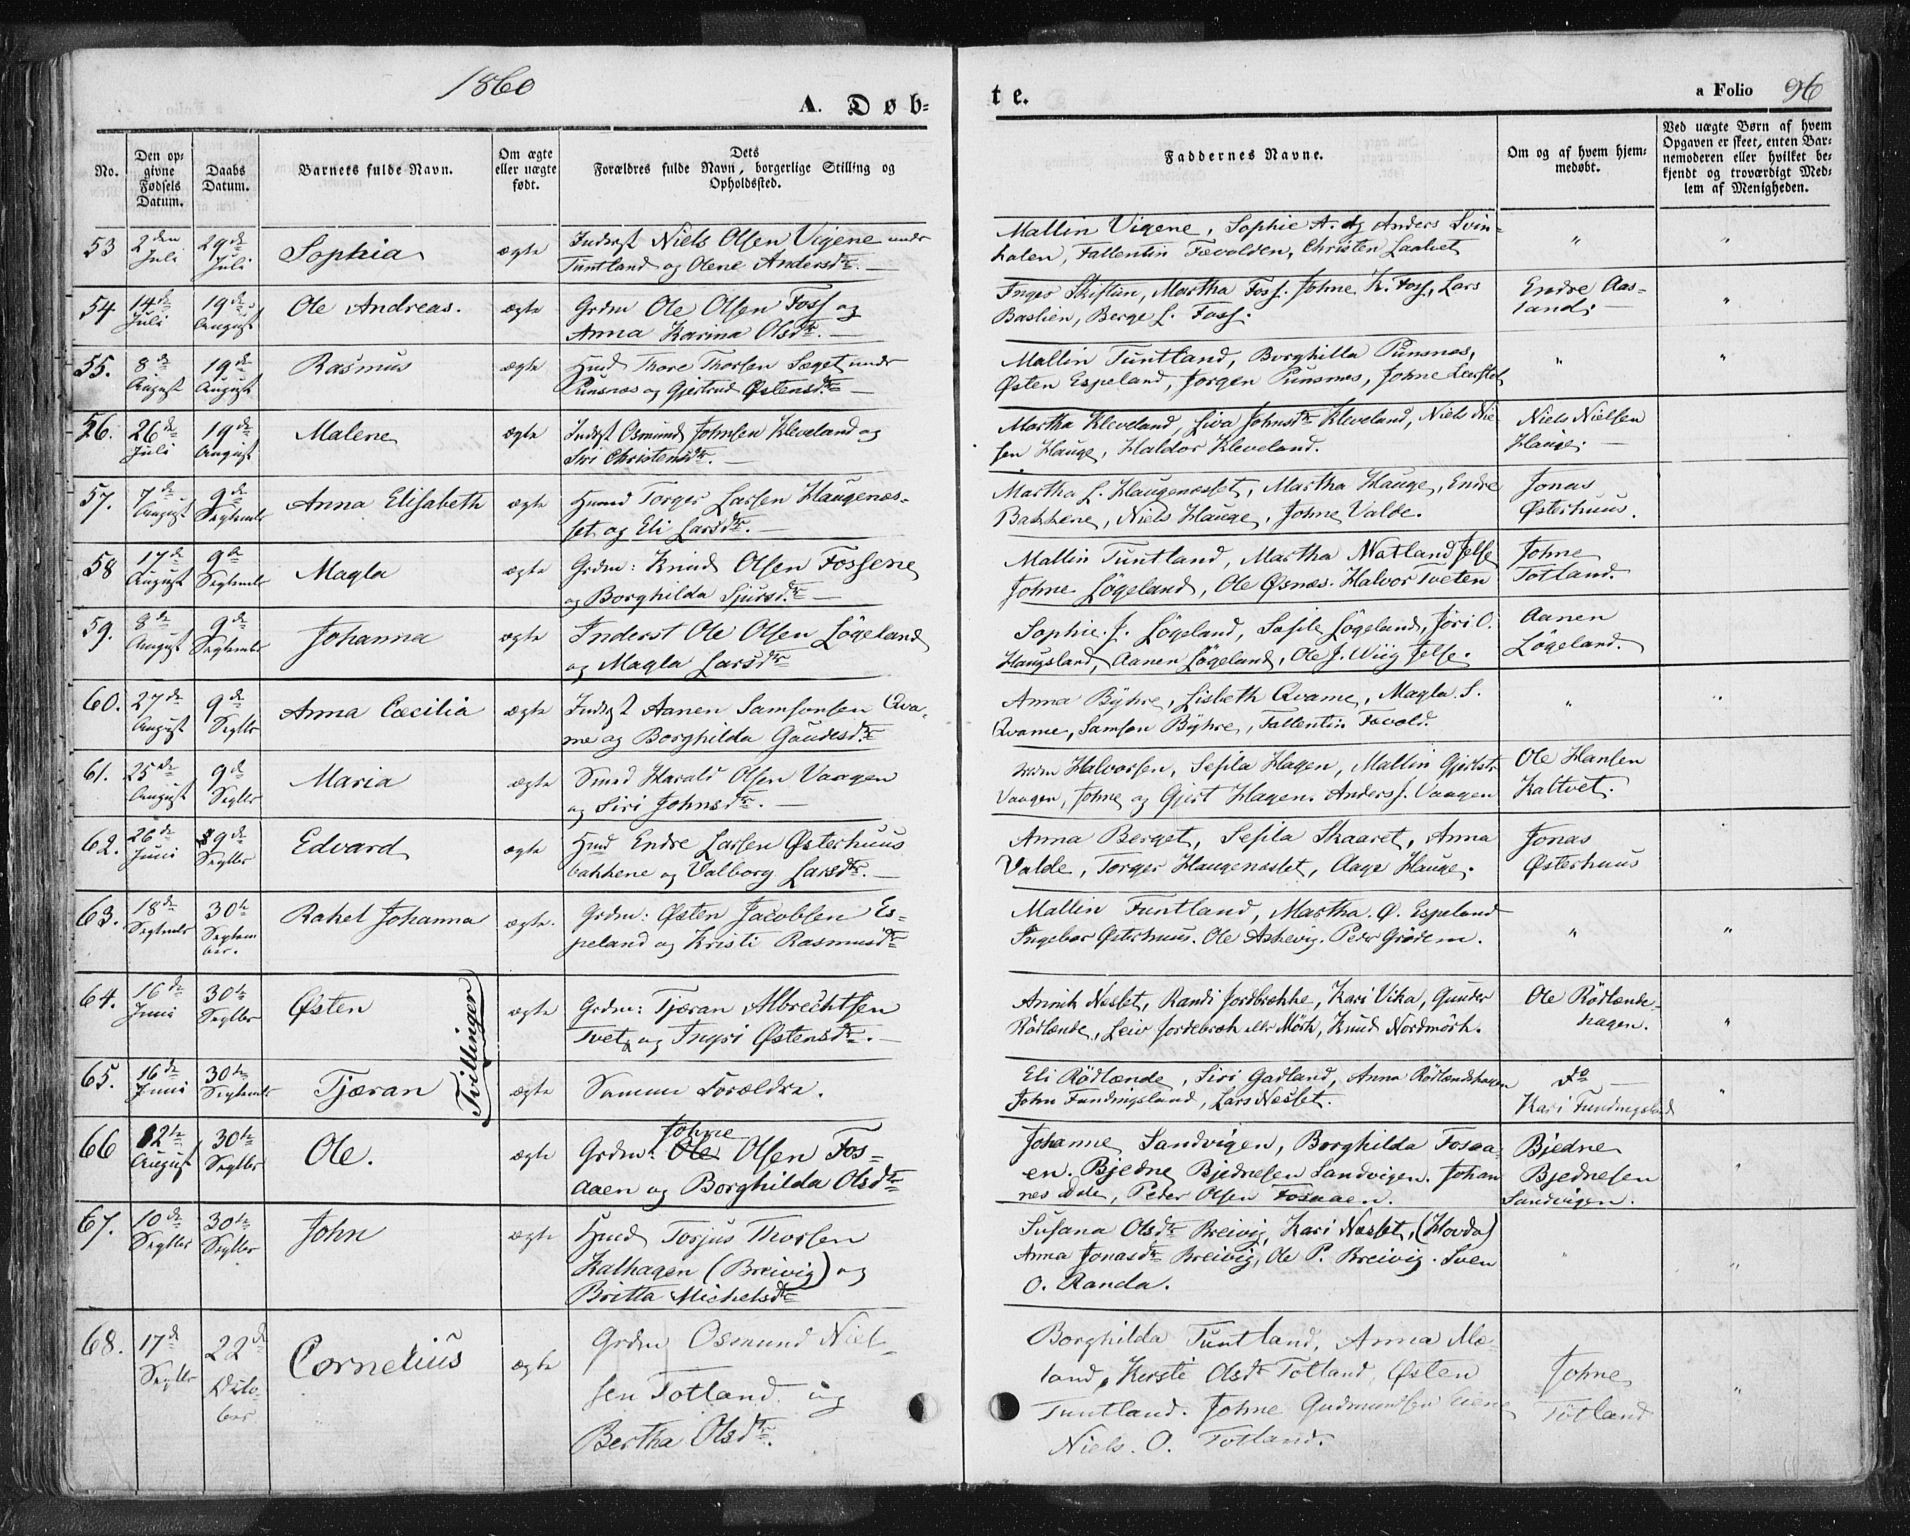 1860
A. Døb=
te.
a Folio 96
No.
Den op=
givne
Fødsels
Datum.
Daabs
Datum.
Barnets fulde Navn.
Om ægte
eller uægte
født.
Dets
Forældres fulde Navn, borgerlige Stilling og
Opholdssted.
Faddernes Navne.
Om og af hvem hjem=
medøbt.
Ved uægte Børn af hvem
Opgaven er skeet, enten Bar=
nemoderen eller hvilket be=
kjendt og troværdigt Med=
lem af Menigheden.
53 2den Juli 29de Juli Sophia ægte Inderst Niels Olsen Vigene under
Tuntland og Olene Andersdtr. —
Mallin Vigene, Sophie A. og Anders Svin-
halen, Fallentin Fævolden, Christen Laalvet " "
54 14de Juli 19de August Ole Andreas. ægte Grdm Ole Olsen Foss og
Anna Karina Olsdtr. —
Inger Skiftun, Martha Foss. Johne K. Foss, Lars
Bastien, Berge L. Foss.
Endre Aas-
land. — "
55. 8de August 19de August Rasmus ægte Husd Thore Thorsen Sæget under
Punsnæs og Gjertrud Østensdtr. —
Mallin Tuntland, Borghilla Punsnæs,
Østen Espeland, Jørgen Punsnæs, Johne " "
56. 26de Juli 19de August Malene ægte Inderst Osmund Johnsen Kleveland og
Siri Christensdtr. —
Martha Kleveland, Siva Johnsdtr Kleveland, Niels Niel-
sen Hauge, Haldor Kleveland.
Niels Nielsen
Hauge. —
57. 7de August 9de Septembr Anna Elisabeth ægte Husmd Torger Larsen Haugenæs-
set og Eli Larsdtr. —
Martha L. Haugenæsset, Martha Hauge, Endre
Bakkene, Niels Hauge, Johne Valde.
Jonas
Østerhuus.
58 17de August 9de Septembr Magla ægte Grdm: Knud Olsen Fossene
og Borghilda Sjursdtr. —
Mallin Tuntland, Martha Natland Jelse
Johne Løgeland, Ole Øsnæs. Halvor Tveten
Johne
Totland.
59. 8de August 9de Septembr Johanna ægte Inderst Ole Olsen Løgeland
og Magla Larsdtr
Sophie. J. Løgeland, Sesile Løgeland, Jøri O.
Haugsland, Aanen Løgeland, Ole J. Wiig Jelse.
Aanen
Løgeland.
60. 27de August 9de Septbr Anna Cæcilia ægte Inderst Aanen Samsonsen Qva-
me og Borghilda Gaudesdtr
Anna Bÿkre, Lisbeth Qvame, Magla S.
Qvame, Samson Bÿkre, Fallentin Fævold. " "
61. 25de August 9de Septbr Maria ægte Smed Harald Olsen Vaagen
og Siri Johnsdtr. —
Halvorsen, Sesila Hagen, Mallin Gjertsdtr
Vaagen, Johne og Gjert Hagen. Anders J. Vaagen
Ole Hansen
Kaltvet.
62. 26de Juni 9de Septbr Edvard ægte Husd Endre Larsen Østerhuus
bakkene og Valborg Larsdtr. —
Anna Berget, Sesila Skaaret, Anna
Valde, Torger Haugenæsset, Aage Hauge.
Jonas
Østerhuus
63. 18de Septembr 30te Septem
ber. Rakel Johanna ægte. Grdm: Østen Jacobsen Es-
peland og Kristi Rasmusdtr
Mallin Tuntland, Martha. Ø. Espeland
Ingebor Østerhuus. Ole Askevig. Peder Grødem. " "
64. 16de Juni 30te Septbr Østen ægte Grdm: Tjæran Albrechtsen
Tvet og Ingri Østensdtr. —
Annik Nesset, Randi Jordbrekke, Kari Vika, Gunder
Rødlende, Leiv Jordebræk eller Mørk, Knud Nordmørk.
Ole Rødlende-
hagen. "
Tvillinger
65. 16de Juni 30te Septembr Tjæran ægte Samme Forældre.
Eli Rødlænde, Siri Gadland, Anna Rødlændshagen
John Fundingsland, Lars Nesset.
Do —
Kari Fundingsland "
66 12te August 30te Septbr Ole. ægte Grdm: Ole Johne Olsen Fos-
aaen og Borghilda Olsdtr
Johanne Sandvigen, Borghilda Fosaa-
en. Bjedne Bjednesen Sandvigen. Johan
nes Dale, Peder Olsen Fosaaen.
Bjedne
Bjednesen
Sandvigen. "
67. 10de Septbr 30te Septbr John ægte Husd Torjus Thorsen
Kalhagen (Breivig) og
Britta Michelsdtr
Susana Olsdtr Breivig, Kari Nesset, (Hovda)
Anna Jonasdtr Breivig, Ole P. Breivig. Sven
O. Randa. " "
68. 17de Septbr 22de Octo-
ber Cornelius ægte Grdm Osmund Niel-
sen Totland og
Bertha Olsdtr.
Borghilda Tuntland, Anna Mæ-
land, Kersti Olsdtr Totland, Østen
Tuntland. Johne Gudmundsen Eiene
Niels. O. Totland.
Johne
Totland "